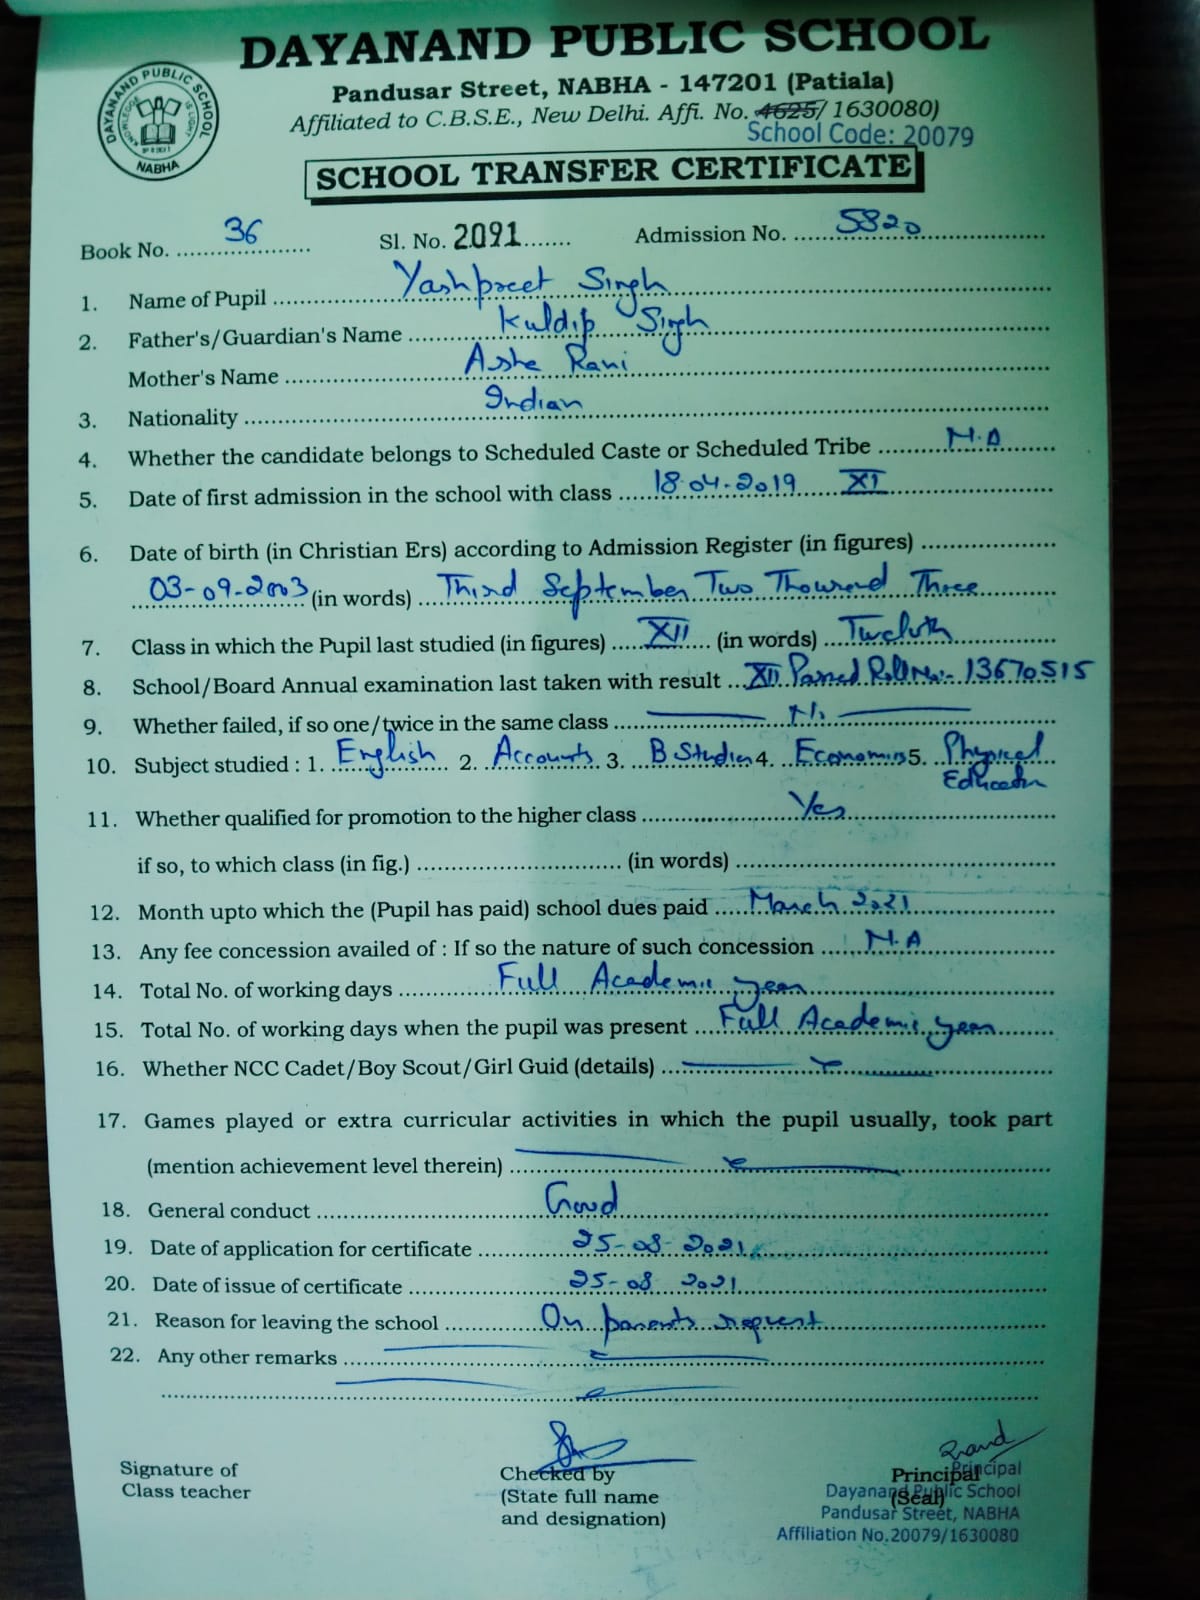 DAYANAND PUBLIC SCHOOL
Pandusar Street, NABHA - 147201 (Patiala)
Affiliated to C.B.S.E., New Delhi. Affi. No. 4625/1630080)
School Code: 20079
DAYANAND PUBLIC SCHOOL
NABHA
SCHOOL TRANSFER CERTIFICATE
Book No. 36 Sl. No. 2091 Admission No. 5820
1. Name of Pupil Yashpreet Singh
2. Father's/Guardian's Name Kuldip Singh
Mother's Name Asha Rani
3. Nationality Indian
4. Whether the candidate belongs to Scheduled Caste or Scheduled Tribe N.A
5. Date of first admission in the school with class 18.04.2019 XI
6. Date of birth (in Christian Ers) according to Admission Register (in figures)
03-09-2003 (in words) Third September Two Thousand Three
7. Class in which the Pupil last studied (in figures) XII (in words) Twelvth
8. School/Board Annual examination last taken with result XII Passed Roll No:- 13670515
9. Whether failed, if so one/twice in the same class
10. Subject studied : 1. English 2. Accounts 3. B Studies 4. Economics 5. Physical
Education
11. Whether qualified for promotion to the higher class Yes
if so, to which class (in fig.) (in words)
12. Month upto which the (Pupil has paid) school dues paid March 2021
13. Any fee concession availed of : If so the nature of such concession N.A
14. Total No. of working days Full Academic year
15. Total No. of working days when the pupil was present Full Academic year
16. Whether NCC Cadet/Boy Scout/Girl Guid (details)
17. Games played or extra curricular activities in which the pupil usually, took part
(mention achievement level therein)
18. General conduct Good
19. Date of application for certificate 25-08-2021
20. Date of issue of certificate 25-08-2021
21. Reason for leaving the school On parents request
22. Any other remarks
Signature of
Class teacher
Checked by
(State full name
and designation)
Principal
(Seal)
Principal
Dayanand Public School
Pandusar Street, NABHA
Affiliation No.20079/1630080